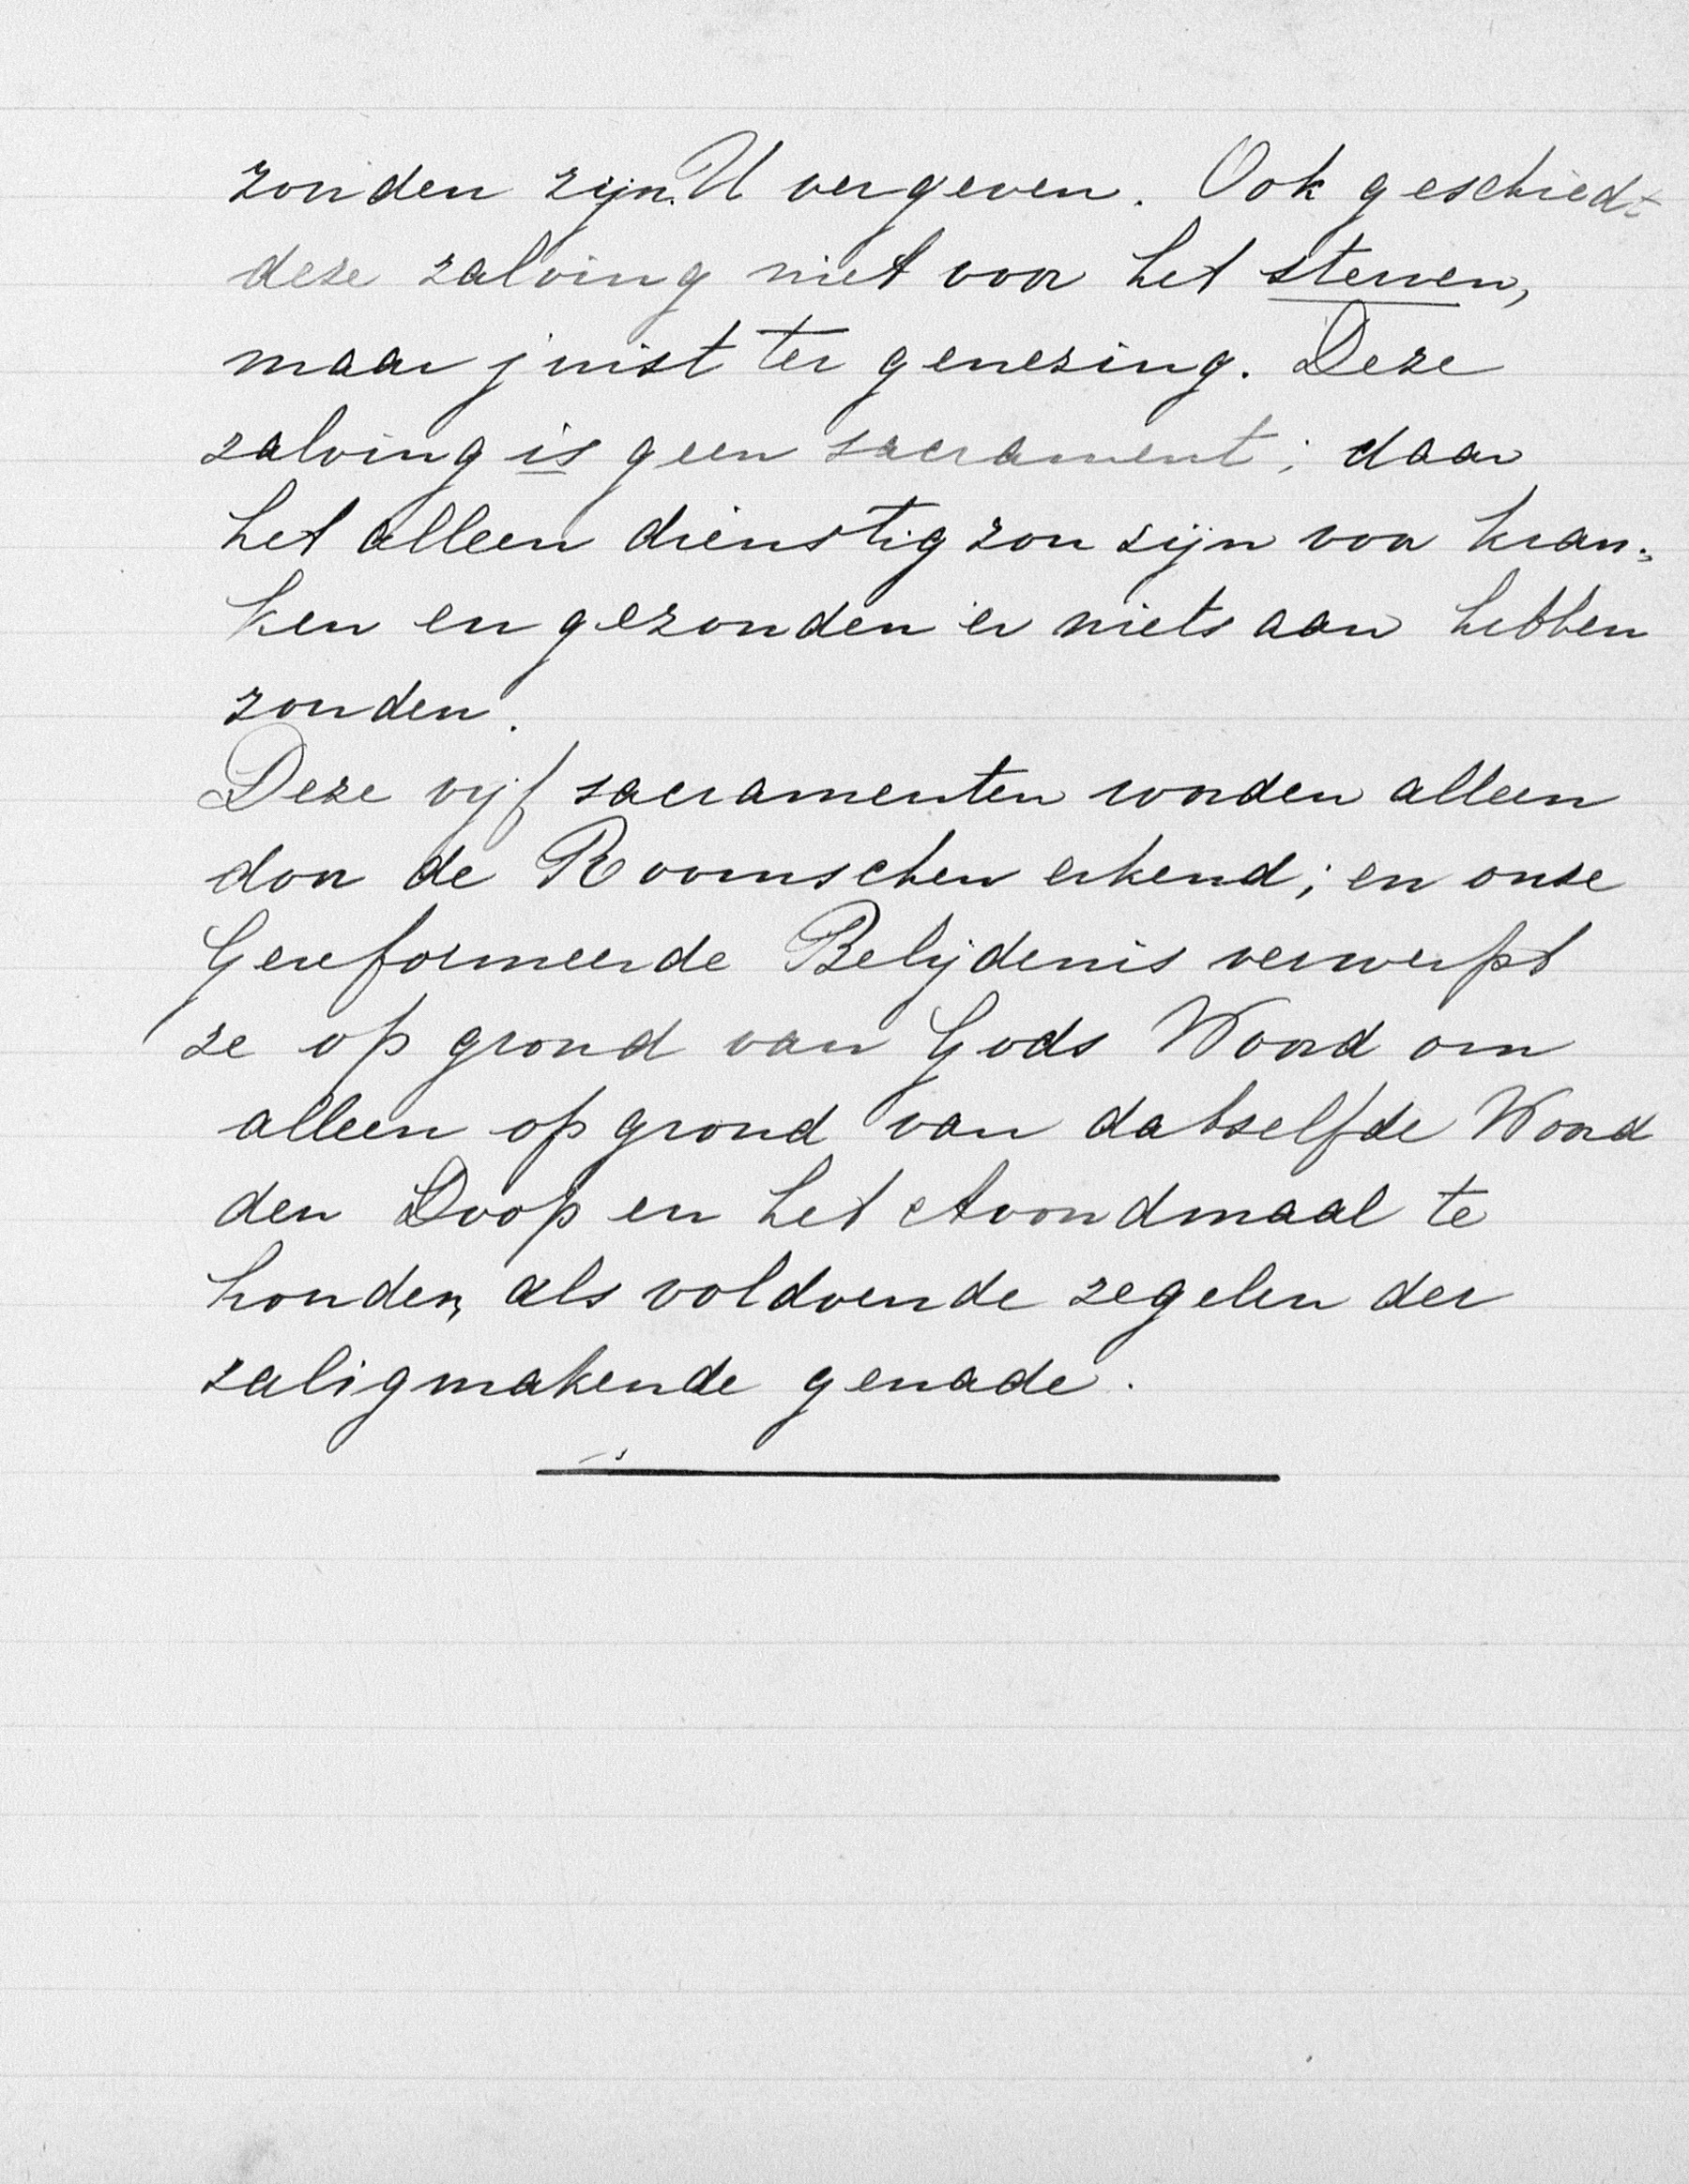 zonden zijn U vergeven. Ook geschiedt
deze zalving niet voor het sterven,
maar juist ter genezing. Deze
zalving is geen sacrament; daar
het alleen dienstig zou zijn voor kran=
ken en gezonden er niets aan hebben
zouden.
Deze vijf sacramenten worden alleen
door de Roomschen erkend; en onze
Gereformeerde Belijdenis verwerpt
ze op grond van Gods Woord om
alleen op grond van datzelfde Woord
den Doop en het Avondmaal te
houden, als voldoende zegelen der
zaligmakende genade.